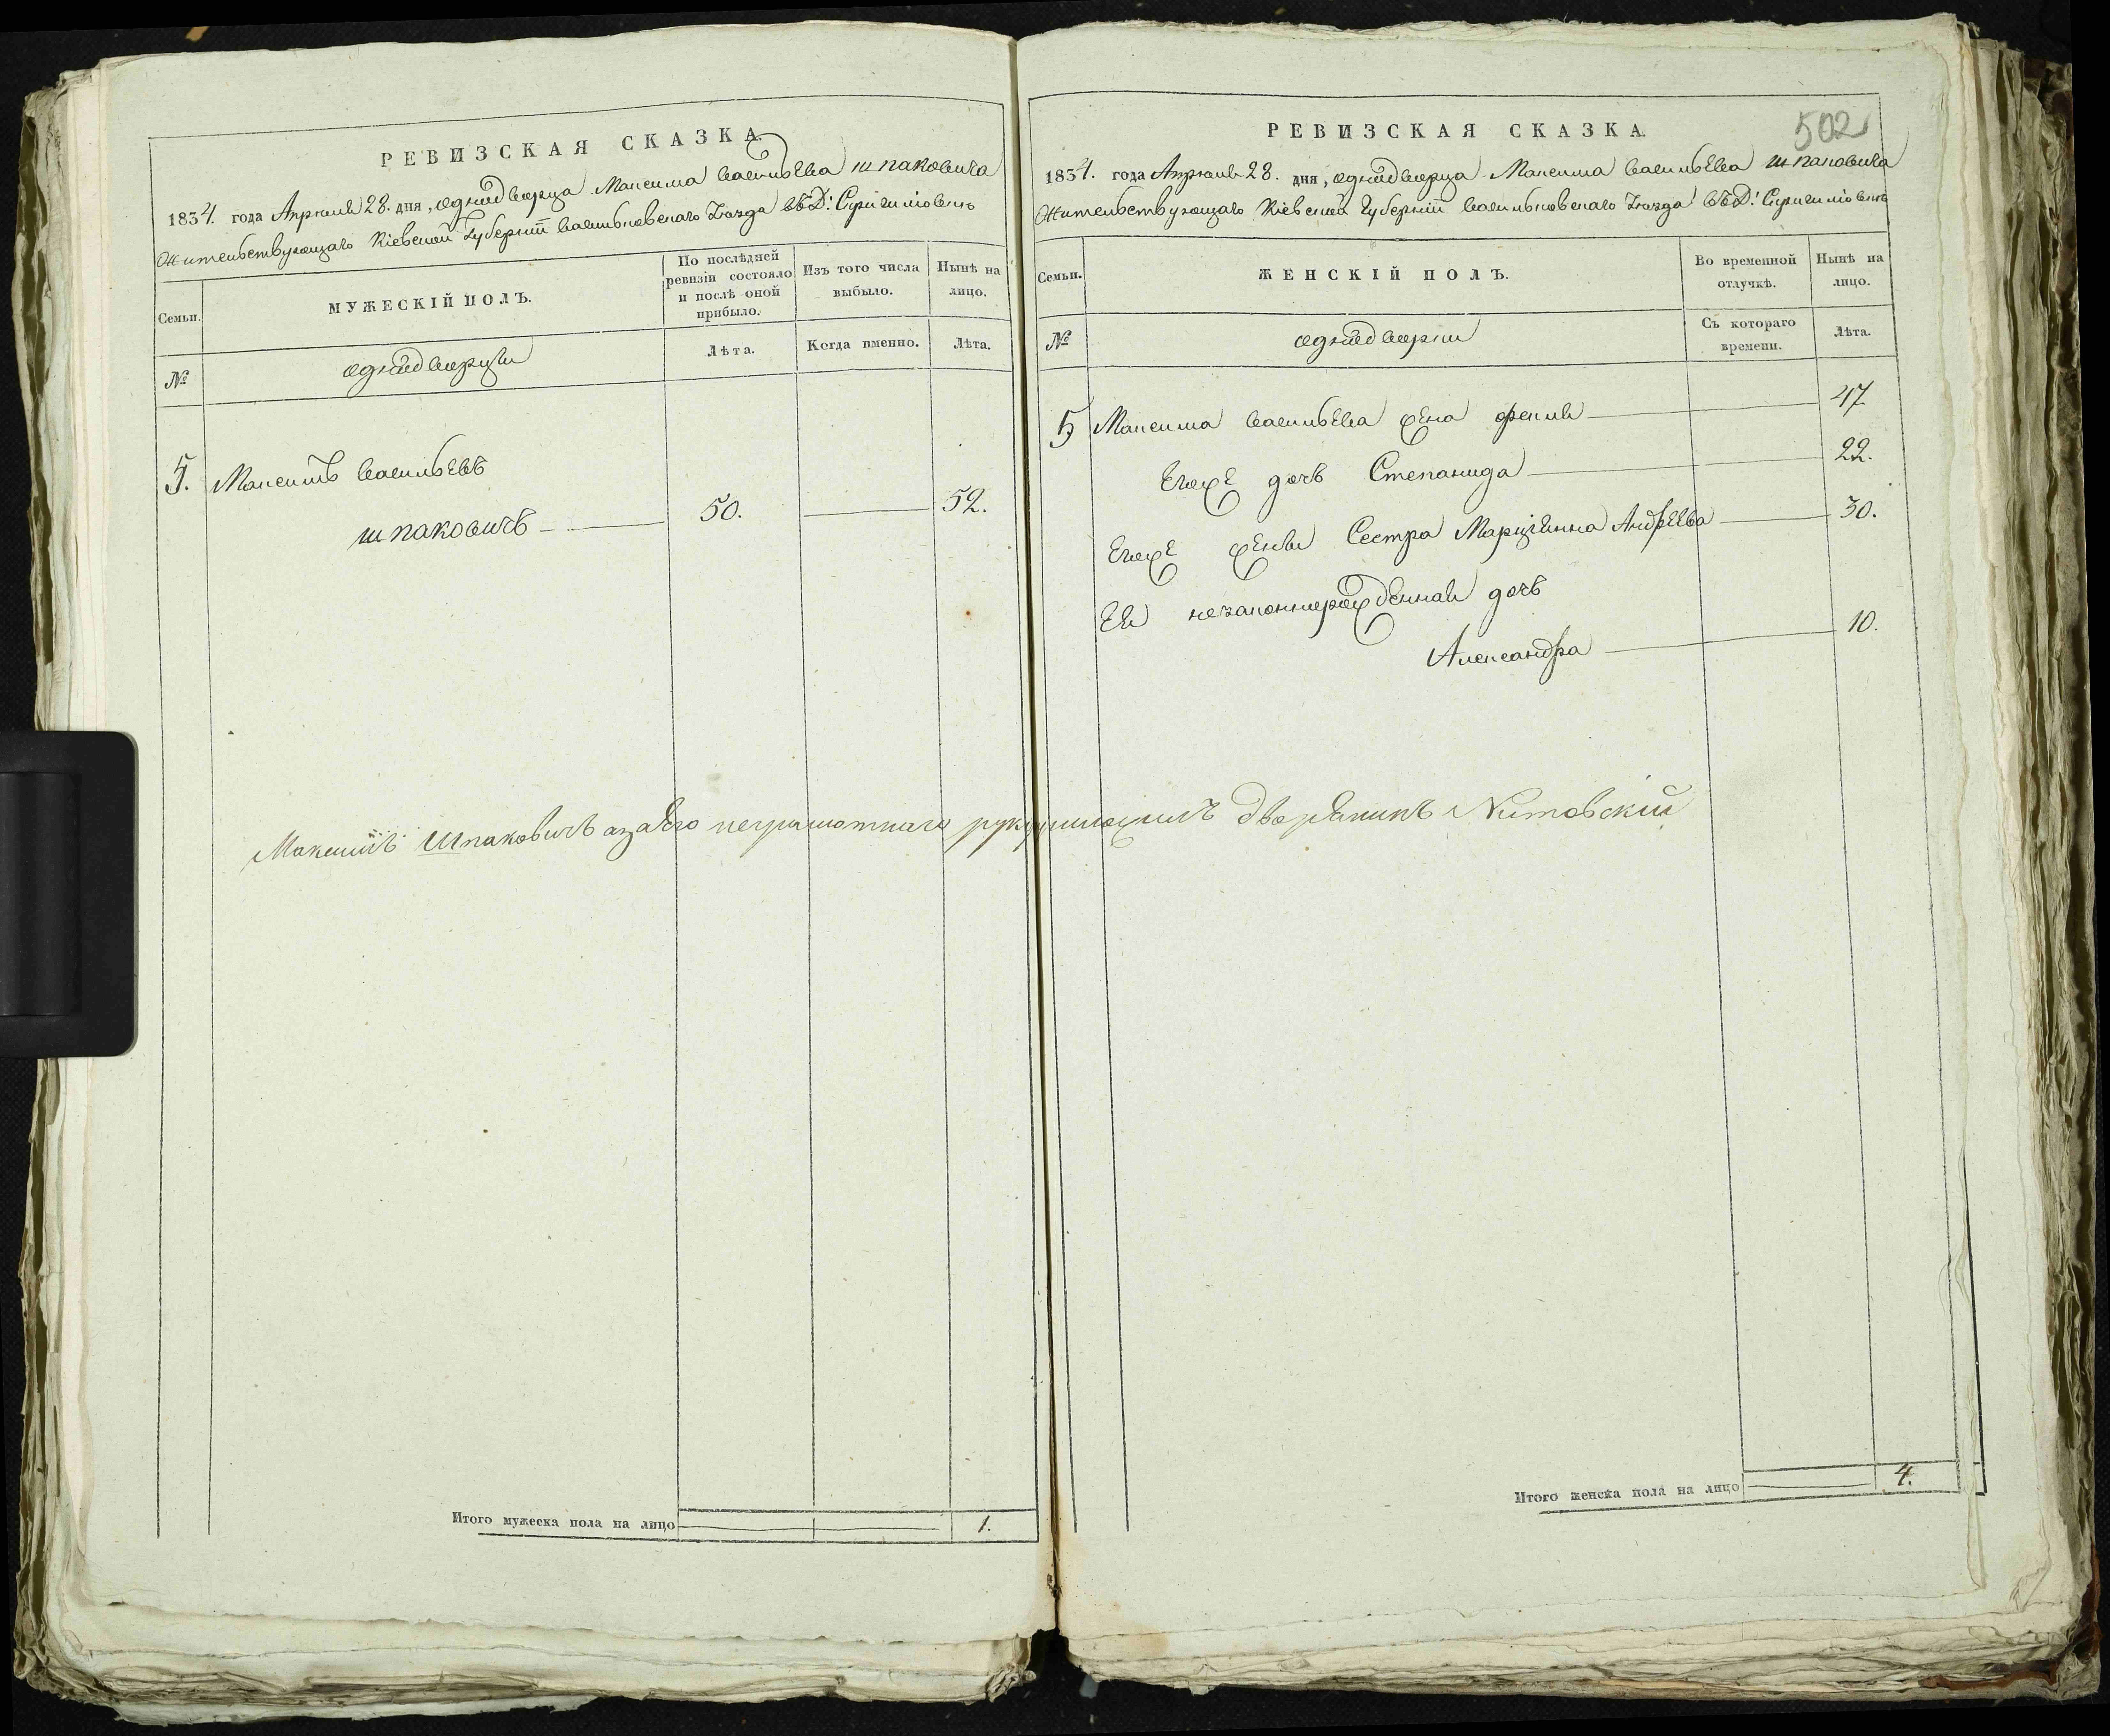 РЕВИЗСКАЯ СКАЗКА.
1834. года Апреля 28. дня, однодворца Максима Васильева Шпаковича
Жительствующаго Кіевской Губерніи Васильковскаго Уезда въ Д:
Семьи.
МУЖЕСКІЙ ПОЛЪ.
По послѣдней ревизіи состояло и послѣ оной прибыло.
Изъ того числа выбыло.
Нынѣ на лицо.
№
однодворцы
Лѣта.
Когда именно.
Лѣта.
5. Максимъ Васильевъ
Шпаковичъ 50. 52.
Итого мужеска пола на лицо 1.
502
РЕВИЗСКАЯ СКАЗКА.
1834. года Апреля 28. дня, однодворца Максима Васильева Шпаковича
Жительствующаго Кіевской Губерніи Васильковскаго Уезда въ Д:
Семьи.
ЖЕНСКІЙ ПОЛЪ.
Во временной отлучкѣ.
Нынѣ на лицо.
№
однодворки
Съ котораго времени.
Лѣта.
5 Максима Васильева жена 47
Егоже дочь Степанида 22.
Егоже жены Сестра Марціянна Андреева 30.
Ея незаконнорожденная дочь
Александра 10.
Максимъ Шпаковичъ а за его неграмотнаго руку приложилъ дворянинъ
Итого женска пола на лицо 4.